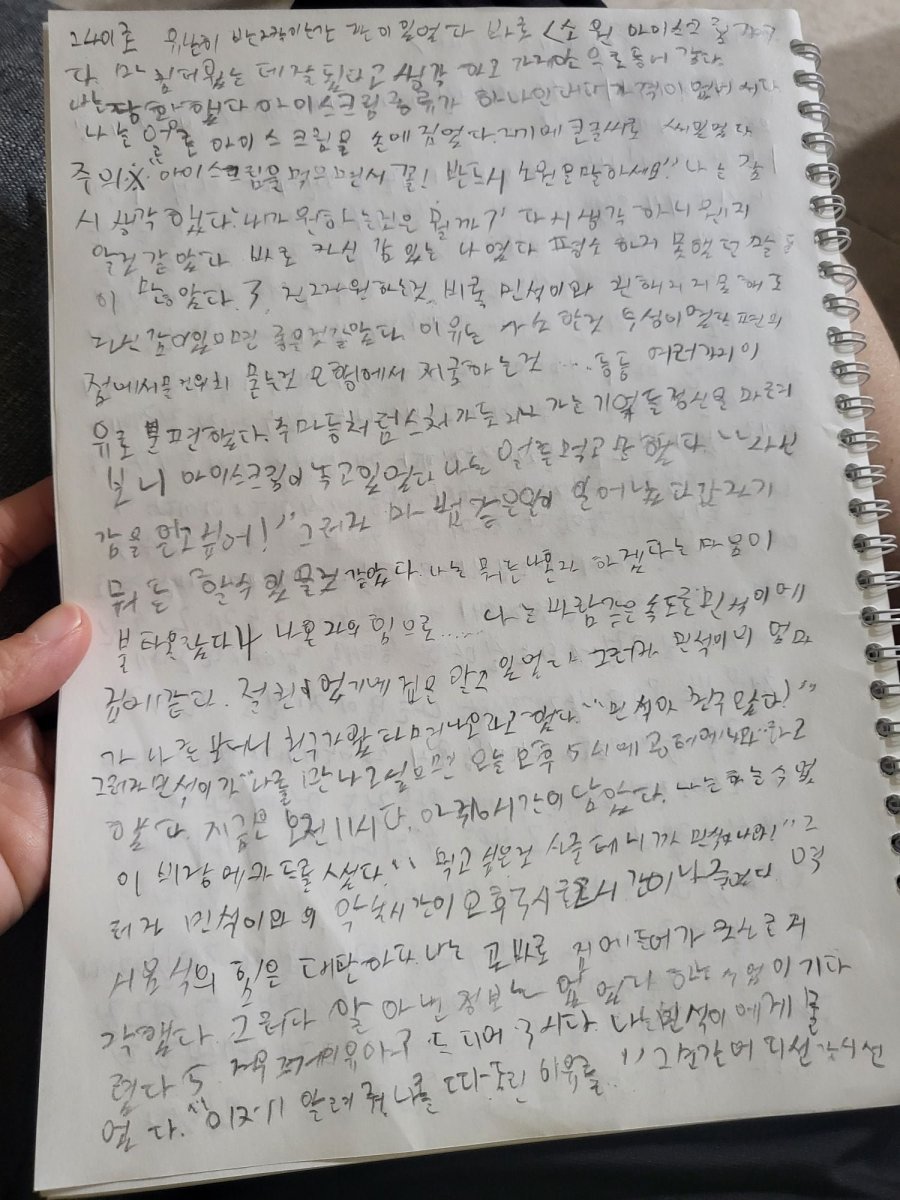 유난히 반짝이는 간판이 있었다 바로 <소원 아이스크림 가게>
다. 마침 더웠는데 잘됬다고 생각하고 가게안으로 들어갔다.
나는 당황했다 아이스크림 종류가 하나인대다 가격이 없어서다
나는 아이스크림을 손에 집었다. 거기에 큰글씨로 써있었다
주의 아이스크림을 먹으면서 꼭! 반드시 소원을 말하세요" 나는 잠
시 생각했다. '내가 원하는것은 뭘까?' 다시 생각하니 뭔지
알것 같았다 바로 자신감있는 나였다 평소 하지 못했던 말들
이 많았다. 진짜 원하는것. 비록 민석이와 친해지지 못해도
자신감이있으면 좋을것같았다. 이유는 사소한것 투성이였다 편의
점에서 물건위치 묻는것 모형에서 지굴하는것 ... 등등 여러가지이
유로 불편했다. 주마등처럼 스쳐가듯 지나가는 기억들 정신을 차려
보니 아이스크림이 녹고있었다 나는 얼른먹고 말했다. "자신
감을 얻고싶어!" 그러자 마법같은일이 일어났다 갑자기
뭐든 할수 있을것 같았다. 나는 뭐든 나혼자 하겠다는 마음이
불타올랐다 나혼자의 힘으로...... 나는 바람같은속도로 민석이에
집에갔다. 절친 집을 알고있었다 그러자 민석이의 엄마
가 나를 보더니 친구가왔다며 나오라고했다. "민석아 친구왔다!"
그러자 민석이가 "나를 만나고싶으면 오늘 오후 5시에 공터에나와"라고
했다. 지금은 오전11시다. 아직6시간이 남았다. 나는 하는수없
이 비장에 카드를 썼다. "먹고 싶은것 사줄테니까 나와!" 그
러자 민석이와의 약속시간이 오후 시간이나 줄었다 역
시 음식의 힘은 대단하다. 나는 곧바로 집에들어가 곰곰히
각했다. 그러나 알아낸 정보는 없었다 한수업이 기다
렸다 드디어 3시다. 나는 민석이에게 물
었다. "이제 알려줘 나를 따돌린 이유를." 그순간 어디선가 시선